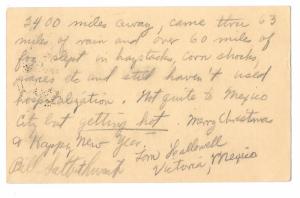 2400 miles away, came thru 63
miles of rain and over 60 miles of
fog slept in haystacks, corn shocks,
etc and still haven't used
hospitalization. Not quite to Mexico
Cit but getting hot. Merry Christmas
& Happy New Year,
Tom Hallowell
Bill
Victoria, Mexico